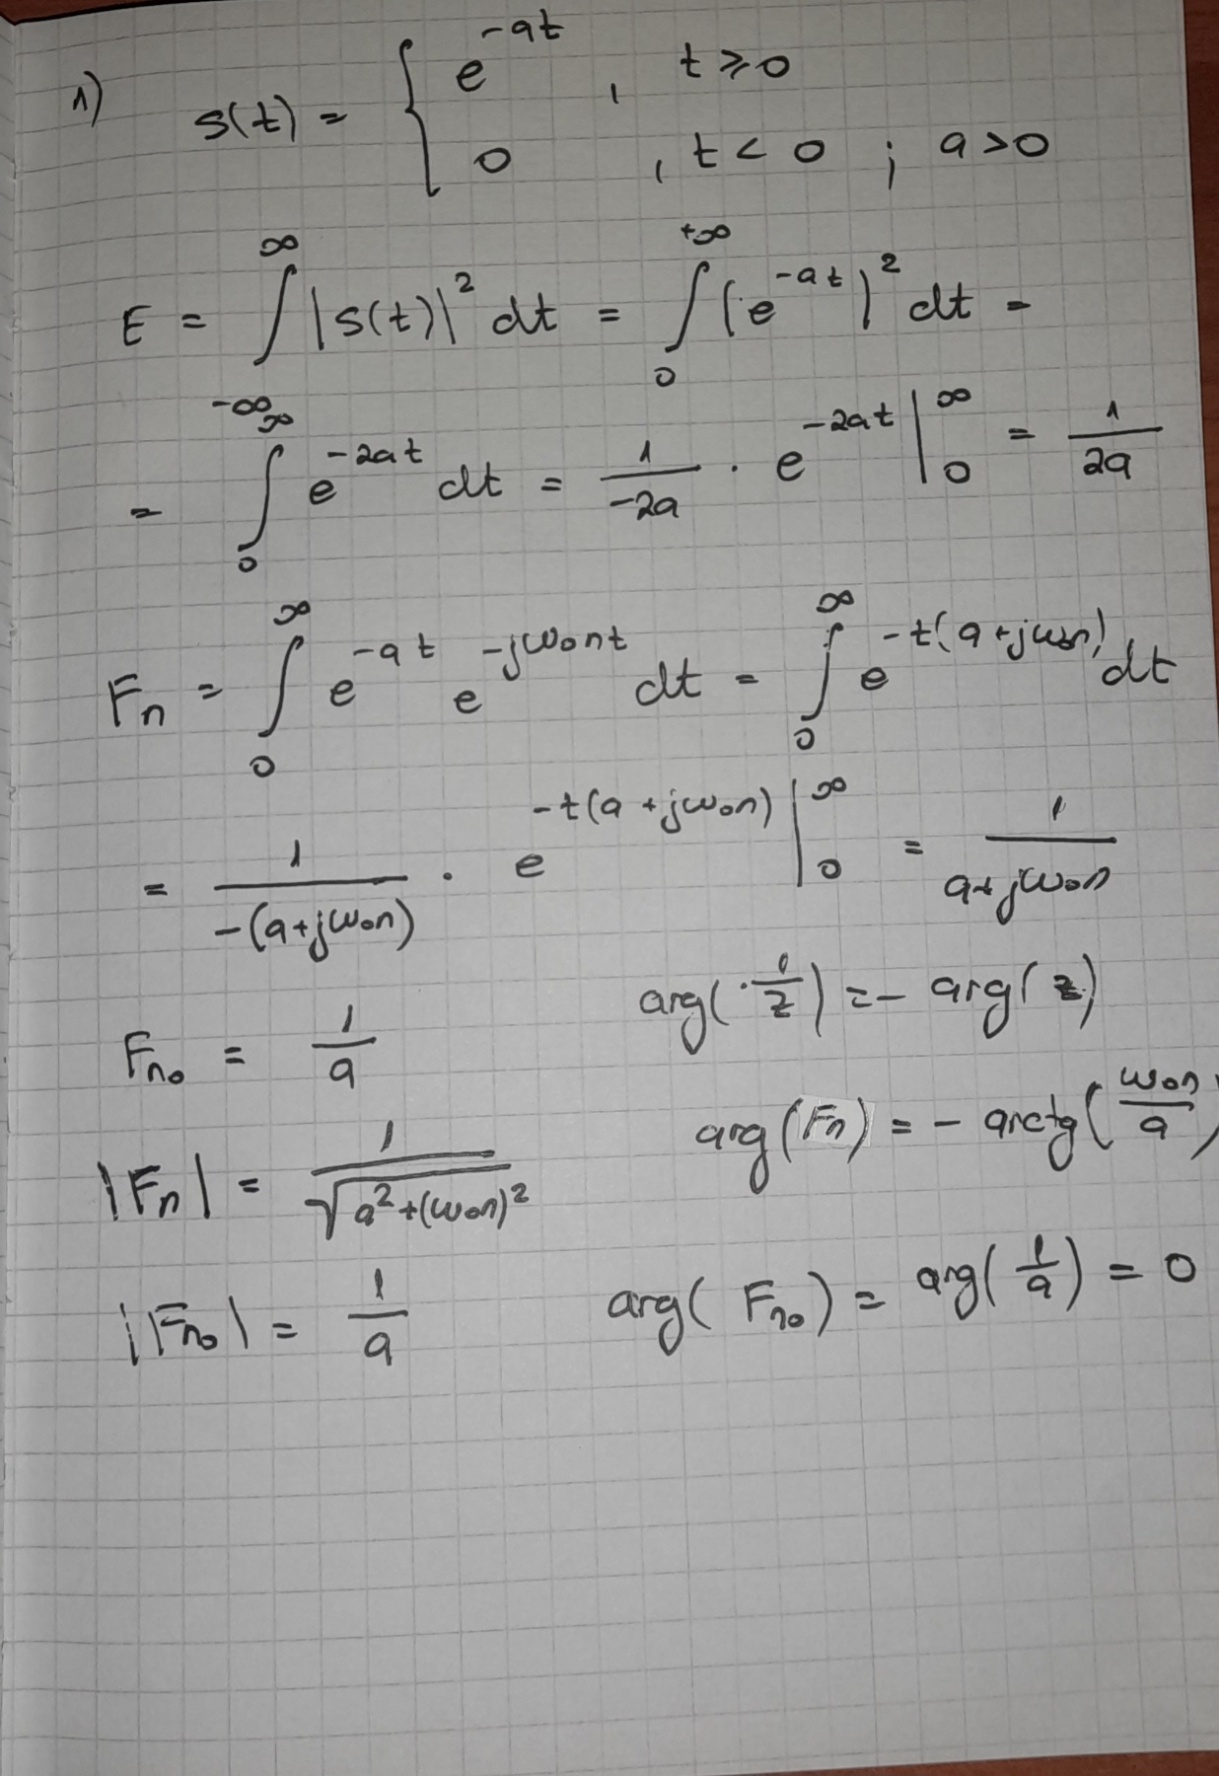 1) s(t) = { e^{-at} , t ⩾ 0
0 , t < 0 ; a > 0
E = ∫_{-∞}^{∞} |s(t)|^2 dt = ∫_{0}^{+∞} (e^{-at})^2 dt =
= ∫_{0}^{∞} e^{-2at} dt = \frac{1}{-2a} · e^{-2at} |_{0}^{∞} = \frac{1}{2a}
F_n = ∫_{0}^{∞} e^{-at} e^{-jω_0nt} dt = ∫_{0}^{∞} e^{-t(a+jω_0n)} dt
= \frac{1}{-(a+jω_0n)} · e^{-t(a+jω_0n)} |_{0}^{∞} = \frac{1}{a+jω_0n}
arg(\frac{1}{z}) = - arg(z)
F_{n_0} = \frac{1}{a}
arg(F_n) = - arctg(\frac{ω_0n}{a})
|F_n| = \frac{1}{\sqrt{a^2+(ω_0n)^2}}
|F_{n_0}| = \frac{1}{a} arg(F_{n_0}) = arg(\frac{1}{a}) = 0